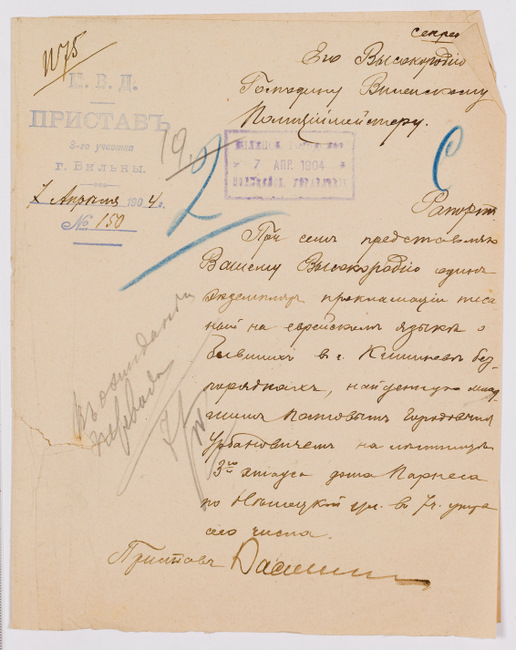 №75
секрет
М. В. Д.
ПРИСТАВЪ
3-го участка
г. Вильны.
7 Апреля 1904 г.
№ 150
Его Высокородію
Господину Виленскому
Полиціймейстеру.
19
2
7 АПР. 1904
Рапортъ
При семъ представляю
Вашему Высокородію одинъ
экземпляръ прокламаціи писа
ной на еврейскомъ языкѣ о
бывшихъ в г. Кишиневѣ без
порядкахъ, найденную млад
шимъ постовымъ Городовымъ
Урбановичемъ на лѣстницѣ
3го этажа дома Парнеса
по Нѣмецкой ул. в 7 ч. утра
сего числа.
Въ ожиданіи
перевода
7/IV
Приставъ